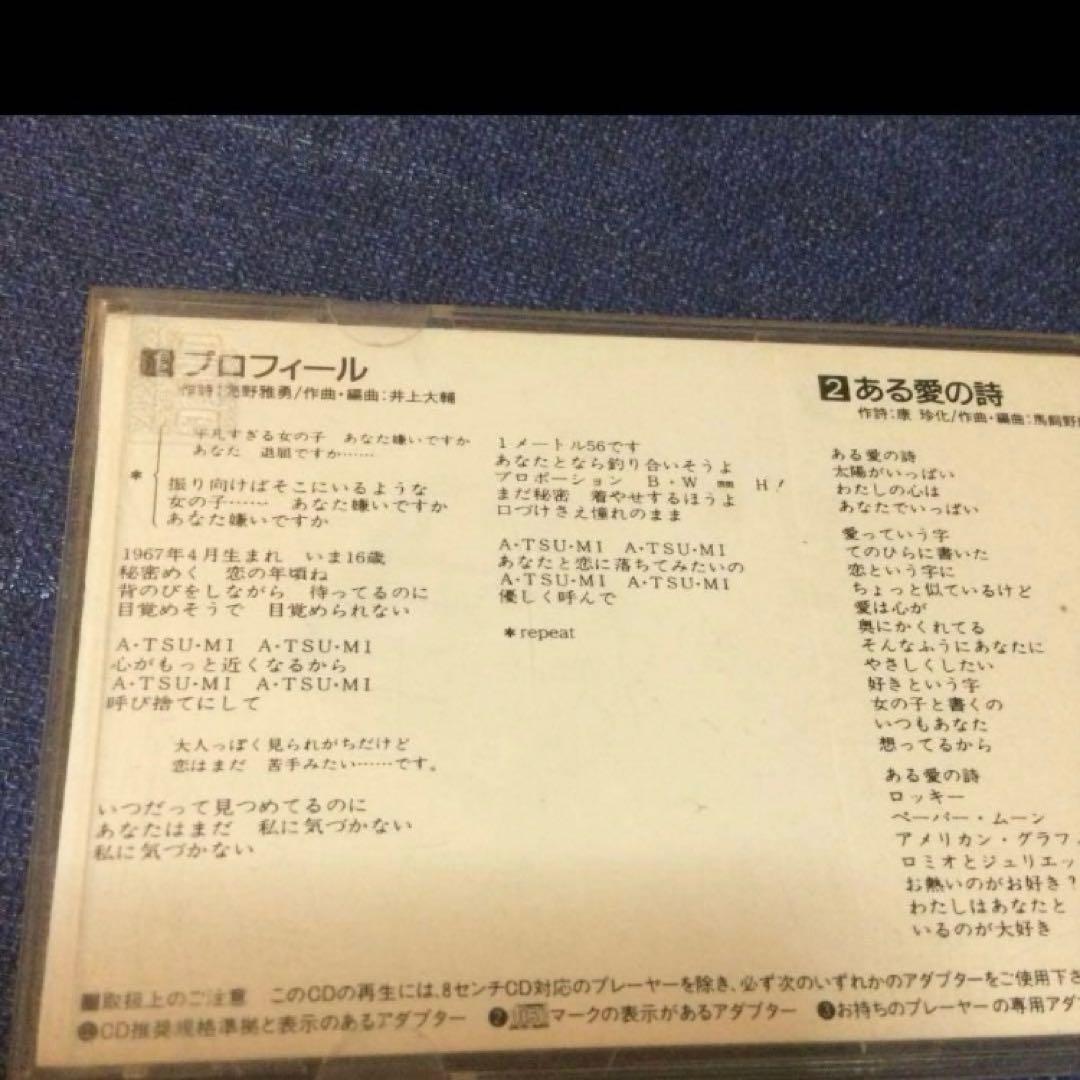 1 プロフィール
作詩:売野雅勇/作曲・編曲:井上大輔
平凡すぎる女の子 あなた嫌いですか
あなた 退屈ですか……
*
振り向けばそこにいるような
女の子…… あなた嫌いですか
あなた嫌いですか
1967年4月生まれ いま16歳
秘密めく 恋の年頃ね
背のびをしながら 待ってるのに
目覚めそうで 目覚められない
A・TSU・MI A・TSU・MI
心がもっと近くなるから
A・TSU・MI A・TSU・MI
呼び捨てにして
大人っぽく見られがちだけど
恋はまだ 苦手みたい……です。
いつだって見つめてるのに
あなたはまだ 私に気づかない
私に気づかない
1メートル56です
あなたとなら釣り合いそうよ
プロポーション B・W H!
まだ秘密 着やせするほうよ
口づけさえ憧れのまま
A・TSU・MI A・TSU・MI
あなたと恋に落ちてみたいの
A・TSU・MI A・TSU・MI
優しく呼んで
*repeat
2 ある愛の詩
作詩:康 珍化/作曲・編曲:馬飼野
ある愛の詩
太陽がいっぱい
わたしの心は
あなたでいっぱい
愛っていう字
てのひらに書いた
恋という字に
ちょっと似ているけど
愛は心が
奥にかくれてる
そんなふうにあなたに
やさしくしたい
好きという字
女の子と書くの
いつもあなた
想ってるから
ある愛の詩
ロッキー
ペーパー・ムーン
アメリカン・グラフ
ロミオとジュリエッ
お熱いのがお好き?
わたしはあなたと
いるのが大好き
■取扱上のご注意 このCDの再生には、8センチCD対応のプレーヤーを除き、必ず次のいずれかのアダプターをご使用下さ
❶CD推奨規格準拠と表示のあるアダプター ❷マークの表示があるアダプター ❸お持ちのプレーヤーの専用アダ